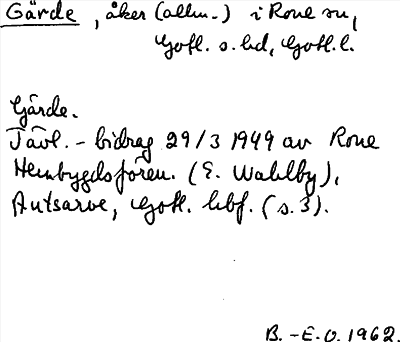 Gärde, åker (allm.) i Rone sn,
Gotl. s. hd, Gotl. l.
Gärde.
Tävl.-bidrag 29/3 1949 av Rone
Hembygdsfören. (E. Wahlby),
Autsarve, Gotl. hbf. (s. 3).
B.-E.O. 1962.